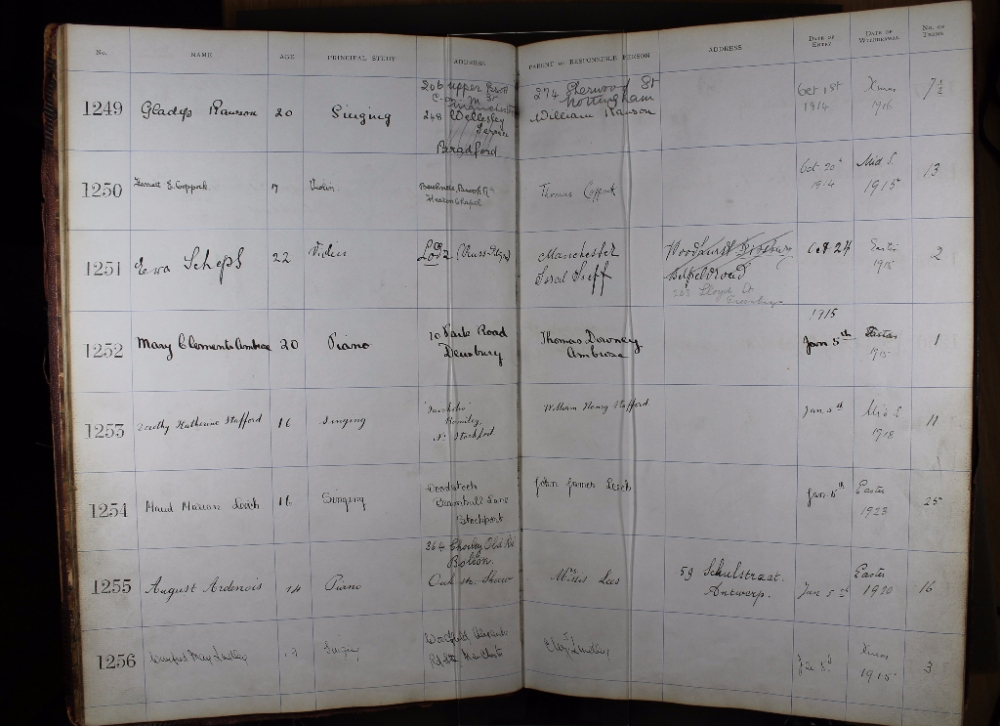 No. NAME AGE PRINCIPAL STUDY ADDRESS PARENT or RESPONSIBLE PERSON ADDRESS DATE OF ENTRY DATE OF WITHDRAWAL NO. OF TERMS
1249 Gladys Rawson 20 Singing 206 Upper
248 Wellesley
Bradford
274 Sherwood St
Nottingham
William Rawson
Oct 1st
1914
Xmas
1916
7½
1250 7 Violin
Heaton Chapel
Thomas Coppock
Oct 20th
1914
Mid S.
1915
13
1251 Ewa Scheps 22 Violin
Manchester
Woodhurst Didsbury
203 Lloyd St
Greenheys
Oct 24
1915
2
1252 Mary Clements Ambrose 20 Piano
10 Park Road
Dewsbury
Thomas Downey
Ambrose
1915
Jan 5th
Easter
1915
1
1253 Dorothy Katherine Stafford 16 Singing
Romiley
Nr Stockport
William Henry Stafford
Jan 5th
Mid S
1918
11
1254 Maud Marion Leech 16 Singing
Woodstock
Bramhall Lane
Stockport
John James Leech
Jan 5th
Easter
1923
25
1255 August Ardenois 14 Piano
364 Chorley Old Rd
Bolton.
Oak St. Shaw
Lees
59 Schulstraat.
Antwerp.
Jan 5th
Easter
1920
16
1256 Winifred May Lindley Singing
Manchester
Lindley
Jan 5th
Xmas
1915
3